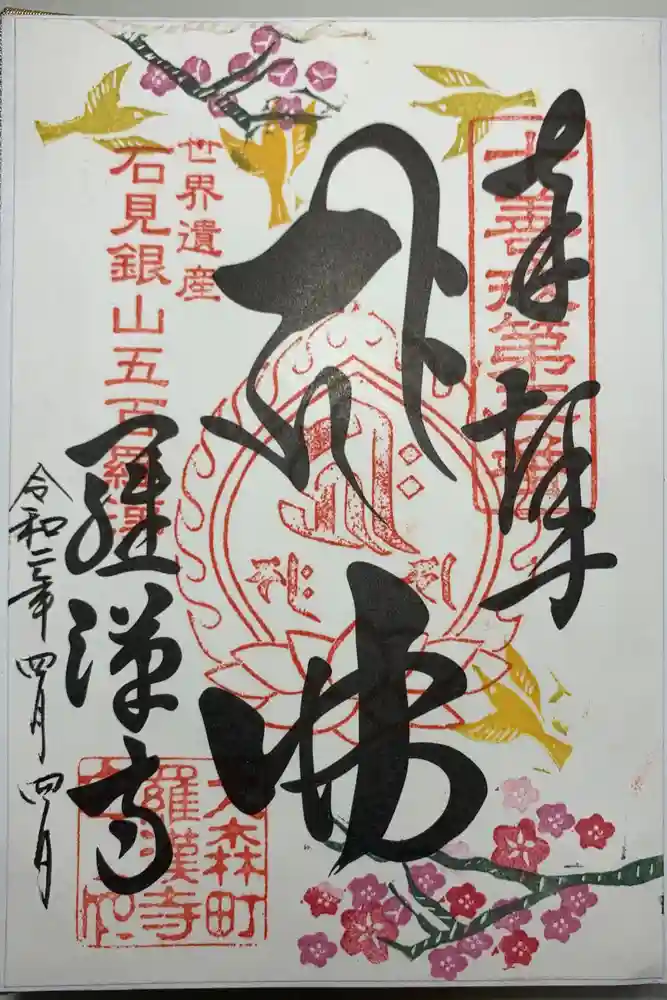 奉拝
佛
世界遺産
石見銀山五百羅漢
羅漢寺
令和三年四月四日
大森町
羅漢寺